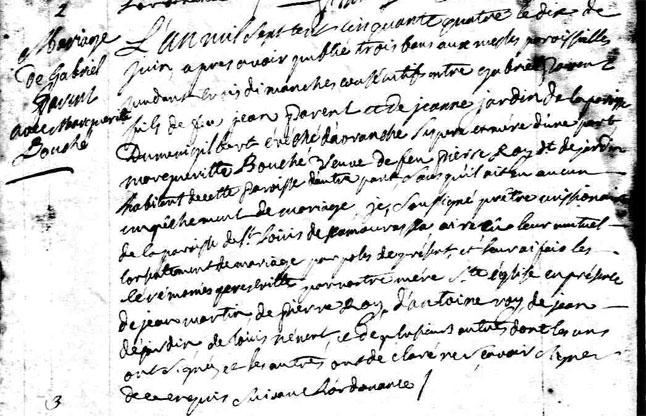 2
Mariage
De Gabriel
Parent
avec Marguerite
Bouché
L'an mil sept cent cinquante quatre le dix de
juin, apres avoir publié trois bans aux messes paroissialles
pendant trois dimanches consecutifs entre gabriel parent
fils de feu jean parent et de jeanne jardin de la paroisse
Dumenipilbart évêché d'avranche ses pere et mere d'une part
margueritte Bouché Veuve de feu pierre Roy dt de jardin
habitant de cette paroisse d'autre part sans qu'il ait eu aucun
empêchement de mariage je, soussigné prêtre missionaire
de la paroisse de St. Louis de Kamouraska ai reçu leur mutuel
consentement de mariage par paroles de présent, et leur ai fais les
cérémonies par nostre mére Ste église en présence
de jean martin de pierre Roy, d'antoine roy de jean
dejardin de louis et de plusieurs autres dont les uns
ont signés et les autres ont declaré ne sçavoir signer
de ce requis suivant l'ordonance
3